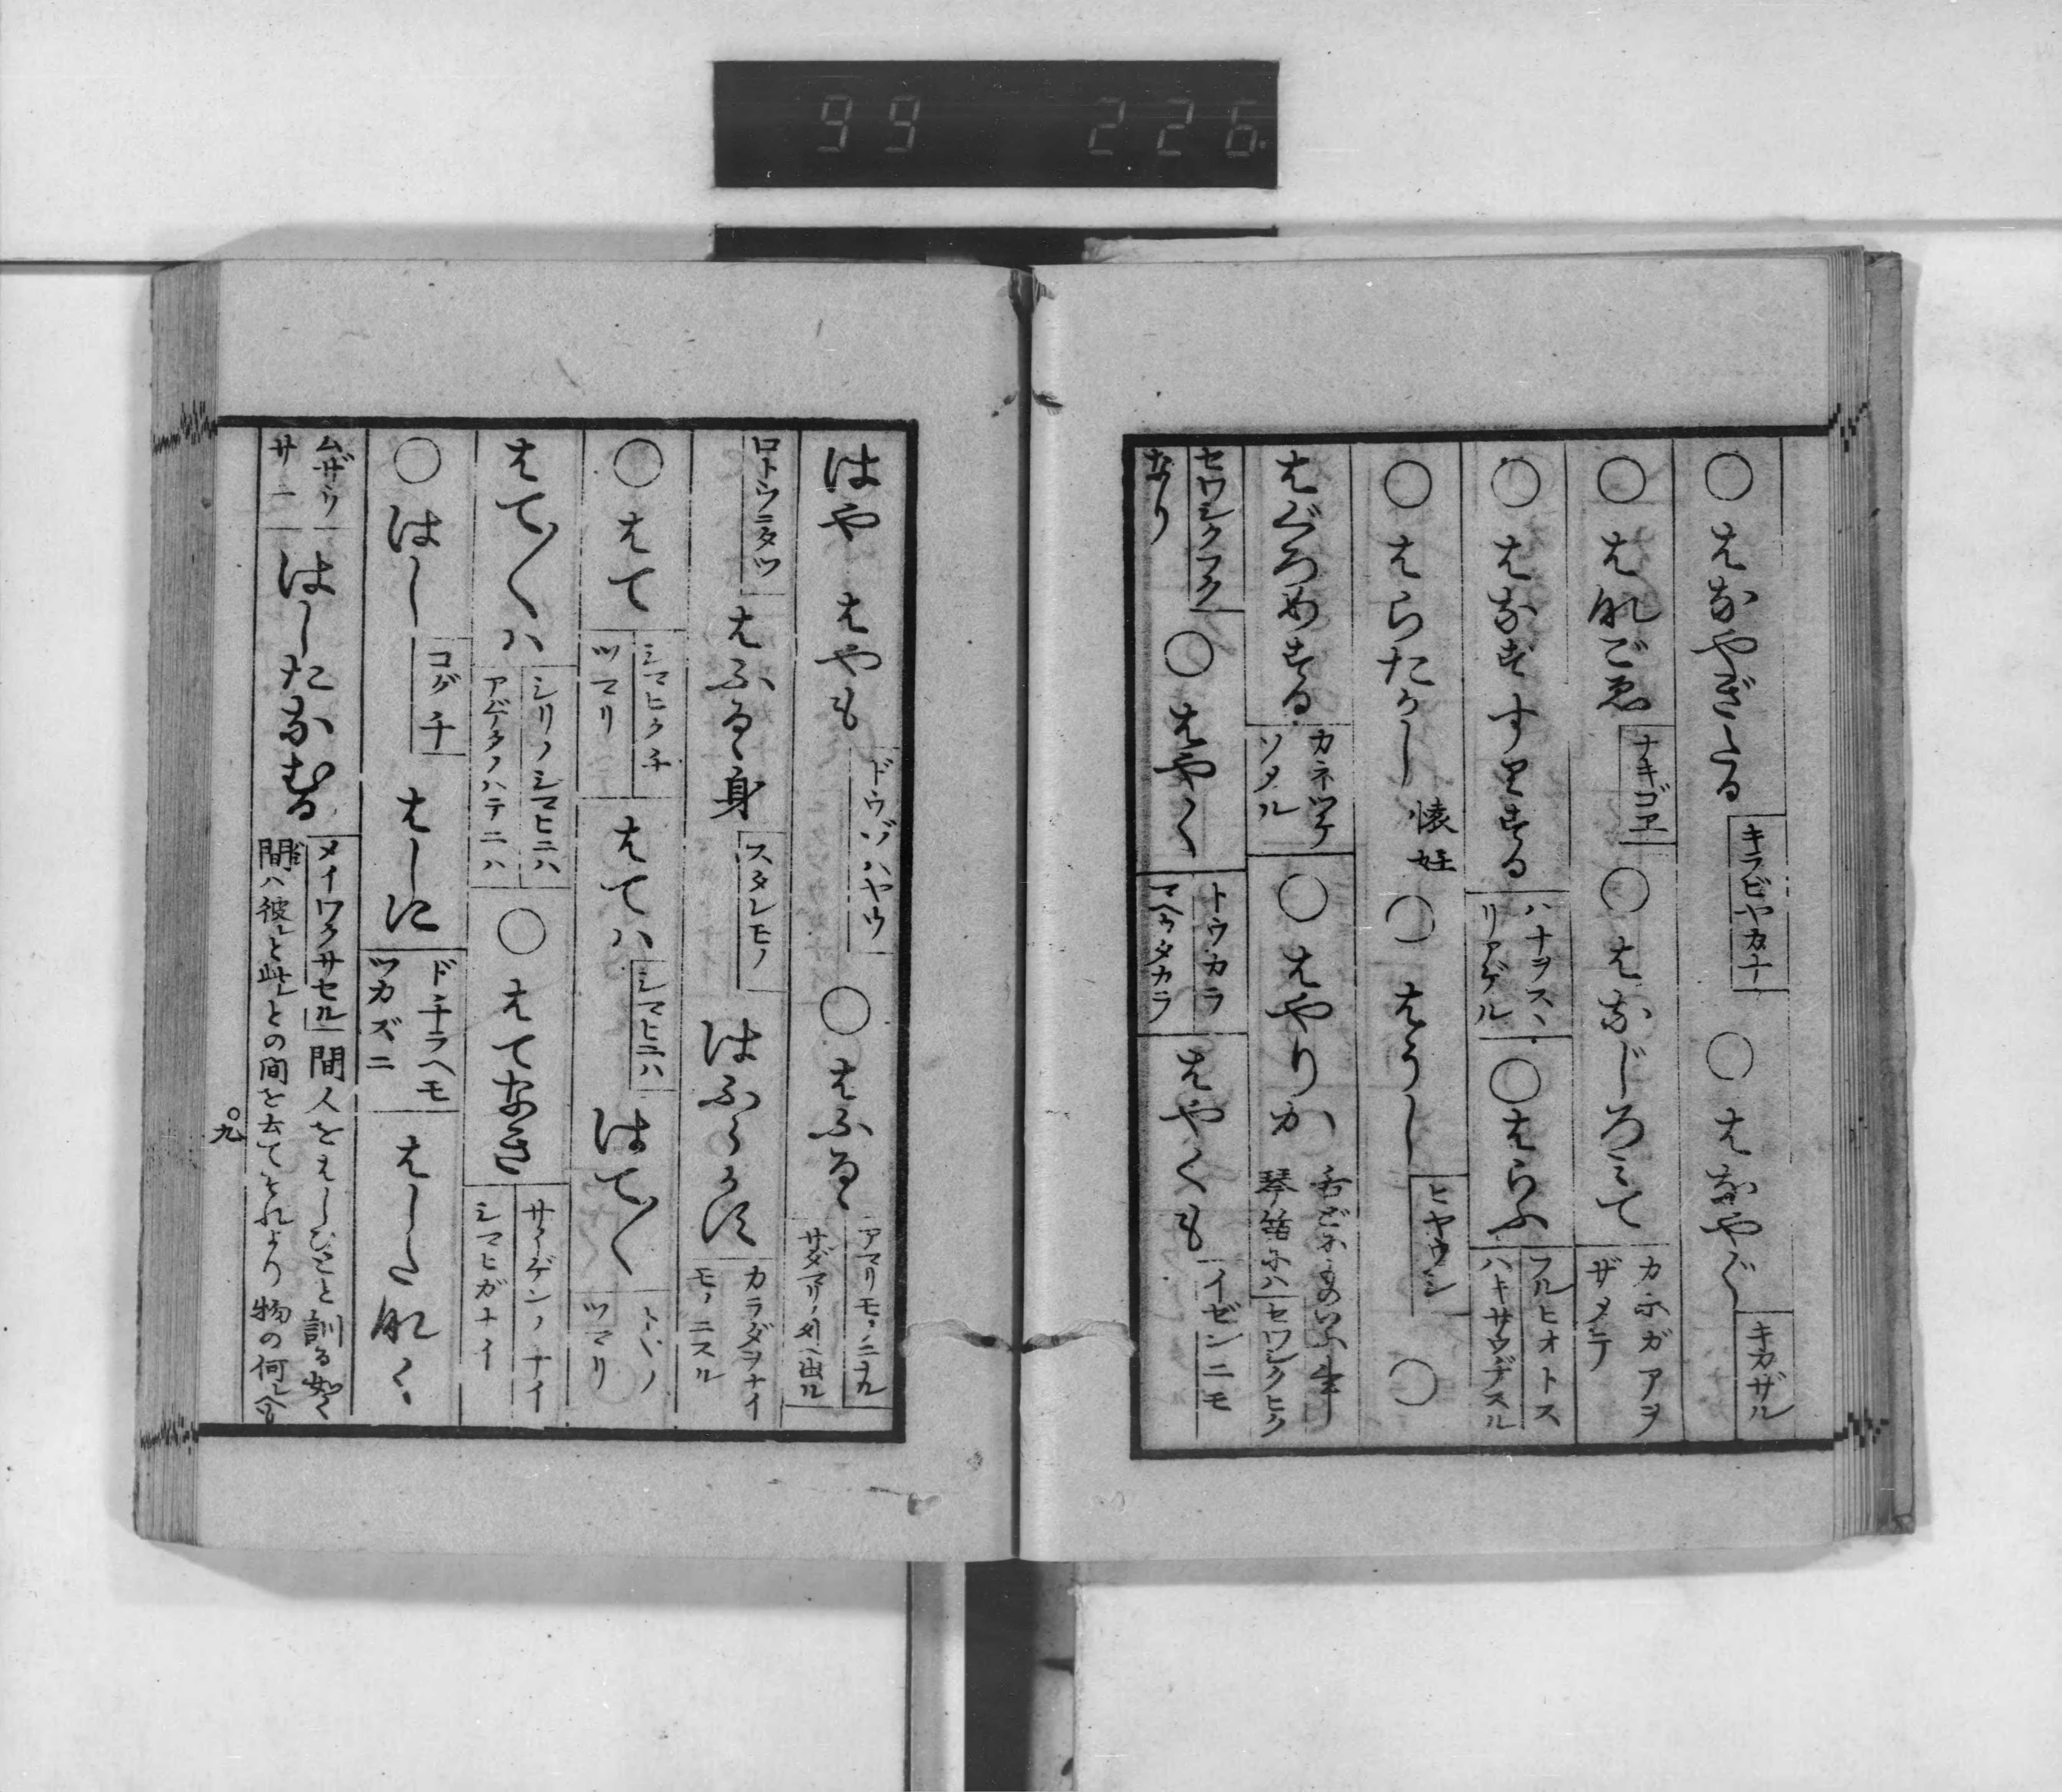 99 226
○はなやぎたる キラビヤカナ ○はなやぐ キカザル
○はねごゑ ナキゴヱ ○はなじろみて カホガアヲザメテ
○はなすすりする ハナヲスヽリアゲル ○はらふ フルヒオトス ハキサウヂスル
○はらたかし 懐妊 ○はうし ヒヤウシ ○
はぐろめする カネツケソメル ○はやりか 琴笛には セワシクヒク
セワシクフク なり ○はやく トウカラ マヘカタカラ はやくも イゼンニモ
はや はやも ドウゾハヤウ ○はふるゝ アマリモノニナル サダマリノ外ヘ出ル
ロトウニタツ はふるゝ身 スタレモノ はふらかす カラダヲナイモノニスル
○はて シマヒクチ ツマリ はてハ シマヒニハ はて〳〵 トヾノツマリ
はて〳〵ハ シリノシマヒニハ アゲクノハテニハ ○はてなき サイゲンノナイ シマヒガナイ
○はし コグチ はしに ドチラヘモツカズニ はしたなく
ムザウサニ はしたなむる メイワクサセル 間人をはしびとと訓る如く
間ハ彼と此との間を去てそれより物の何
九